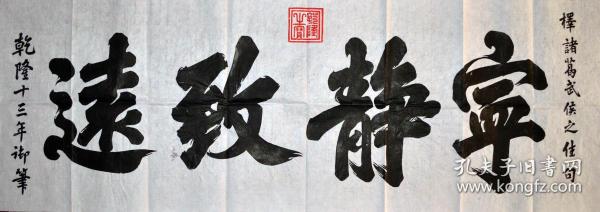 擇諸葛武侯之佳句
寧靜致遠
乾隆十三年御筆
孔夫子旧书网
www.kongfz.com